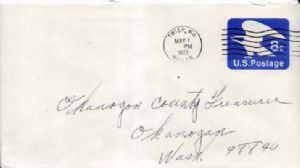 TWISP, WA.
MAY 1
PM
1973
8c
U.S. Postage
Okanogan County Treasure
Okanogan
Wash. 98840